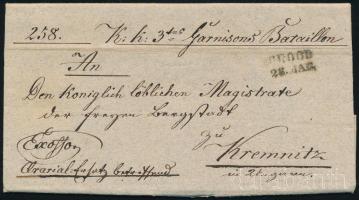 258. K: k: 3tes Garnisons Bataillon
BROOD
28. MAE.
An
Den Königlich löblichen Magistrate
der freyen Bergstadt
zu
Exoffo
Kremnitz
Ararial-Ersatz betreffend
in Ungarn